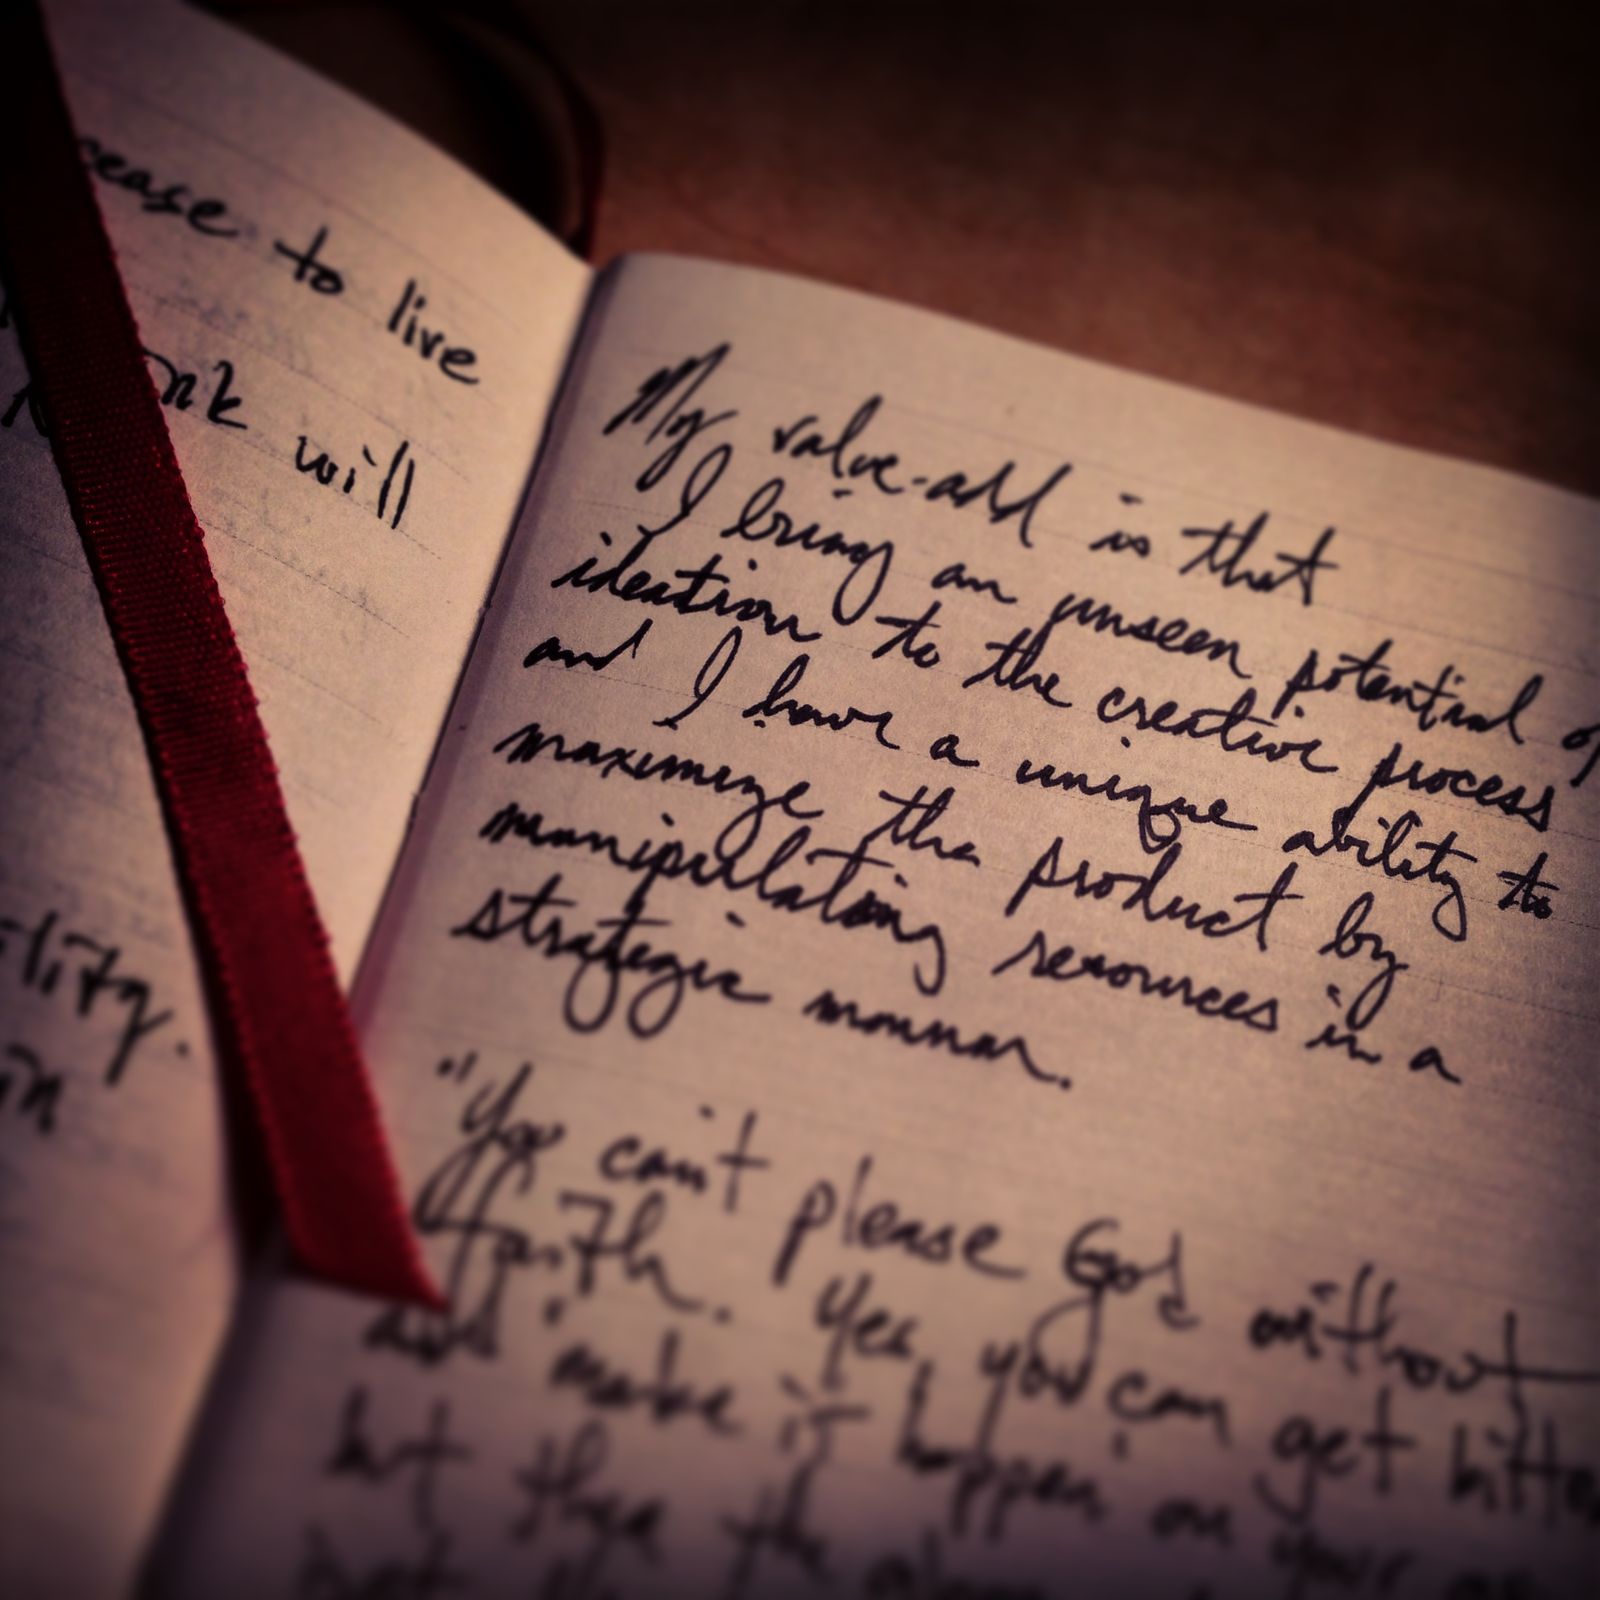 cease to live
will
My value-add is that
I bring an unseen potential of
ideation to the creative process
and I have a unique ability to
maximize the product by
manipulating resources in a
strategic manner.
"You can't please God without
faith. Yes, you can get bitter
and 'make it happen' on your
but then the